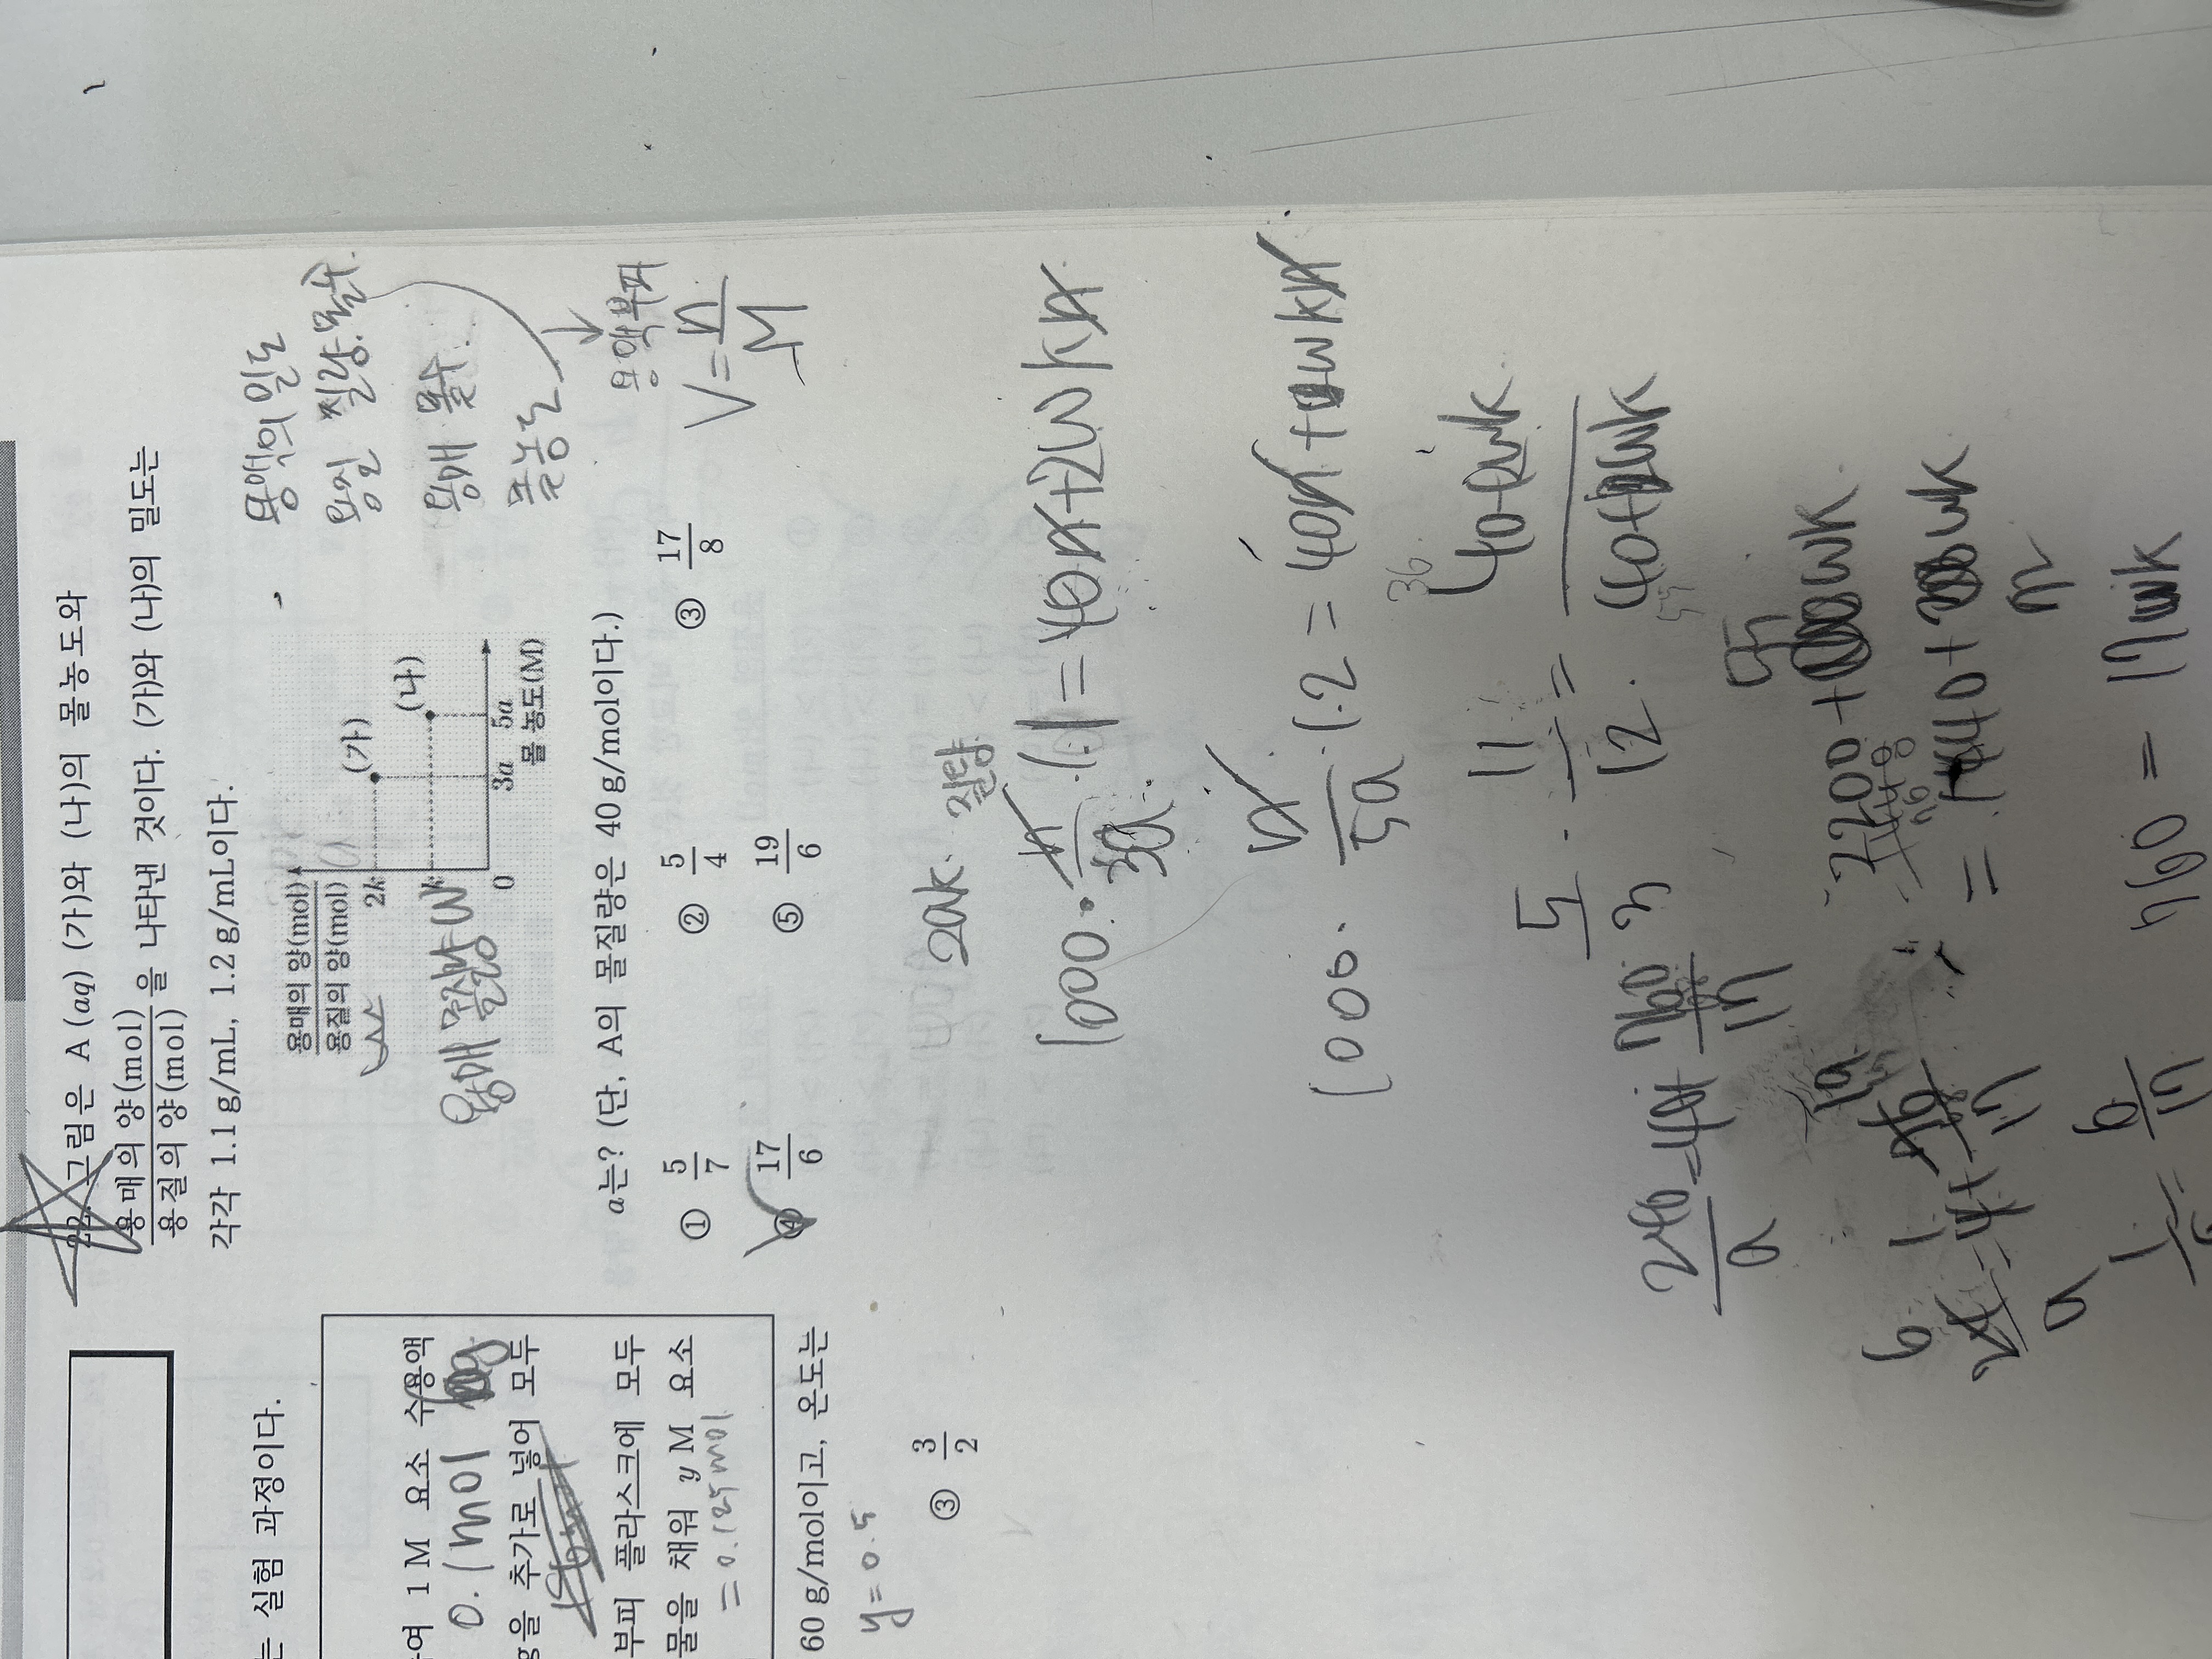 22. 그림은 A (aq) (가)와 (나)의 몰 농도와
용매의 양(mol)
용질의 양(mol)
을 나타낸 것이다. (가)와 (나)의 밀도는
각각 1.1 g/mL, 1.2 g/mL이다.
용매의 양(mol)
용질의 양(mol)
2k
k
0
3a
5a
(가)
(나)
몰 농도(M)
용매 몰질량 w
용액의 밀도
용질 질량.몰수.
용매 몰수.
몰농도
용액부피
V = n/M
a는? (단, A의 몰질량은 40 g/mol이다.)
① 5/7
② 5/4
③ 17/8
④ 17/6
⑤ 19/6
질량
1000 · n/3a · 1.1 = 40n + 2wkn
1000 · n/5a · 1.2 = 40n + wkn
5/3 · 11/12 = 40+2wk / 40+wk
2200 + 55wk
= 1440 + 72wk
760 = 17wk
240/a = 40 + 760/17
1/a = 6/17
는 실험 과정이다.
하여 1 M 요소 수용액
0.1mol
g을 추가로 넣어 모두
부피 플라스크에 모두
물을 채워 y M 요소
= 0.125mol
60 g/mol이고, 온도는
y = 0.5
③ 3/2